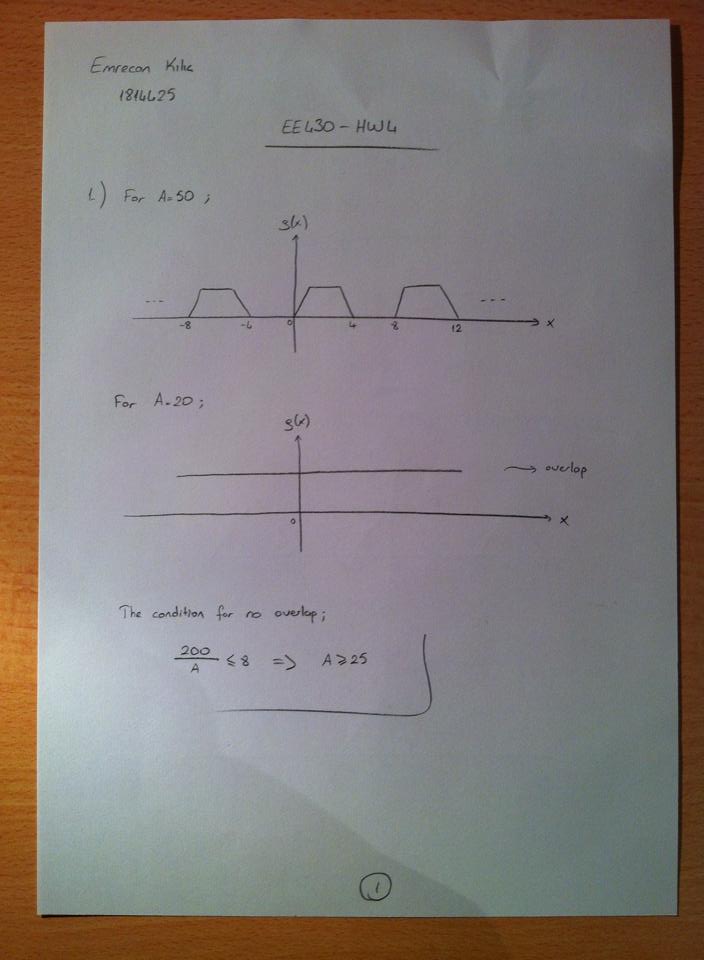 Emrecan Kılıç
1814425
EE430 - HW4
1.) For A=50 ;
g(x)
--- ---
-8 -4 0 4 8 12 x
For A=20 ;
g(x)
→ overlap
0 x
The condition for no overlap ;
200/A ≤ 8 => A ≥ 25
1